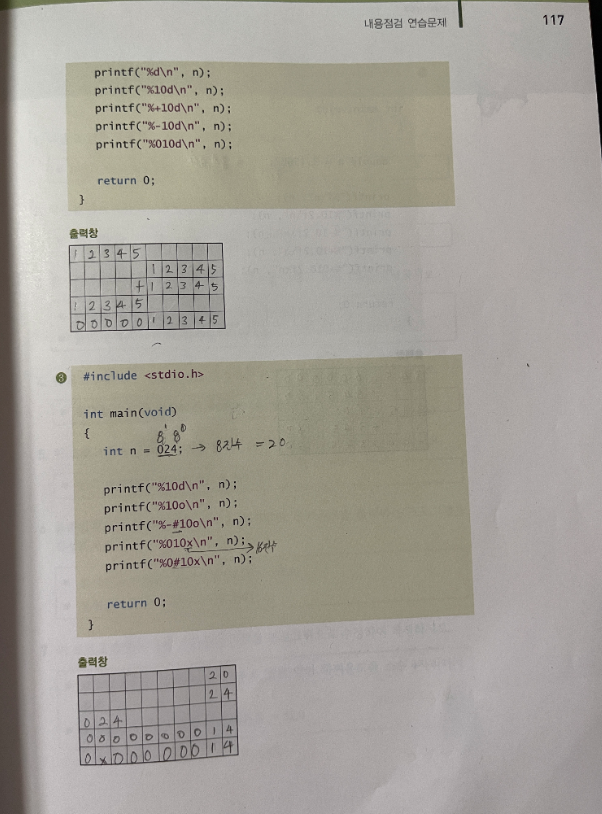 내용점검 연습문제 117
printf("%d\n", n);
printf("%10d\n", n);
printf("%+10d\n", n);
printf("%-10d\n", n);
printf("%010d\n", n);
return 0;
}
출력창
1 2 3 4 5
1 2 3 4 5
+ 1 2 3 4 5
1 2 3 4 5
0 0 0 0 0 1 2 3 4 5
❸ #include <stdio.h>
int main(void)
{ 8¹ 8⁰
int n = 024; → 8진수 = 20
printf("%10d\n", n);
printf("%10o\n", n);
printf("%-#10o\n", n);
printf("%010x\n", n); → 16진수
printf("%0#10x\n", n);
return 0;
}
출력창
2 0
2 4
0 2 4
0 0 0 0 0 0 0 0 1 4
0 x 0 0 0 0 0 0 1 4